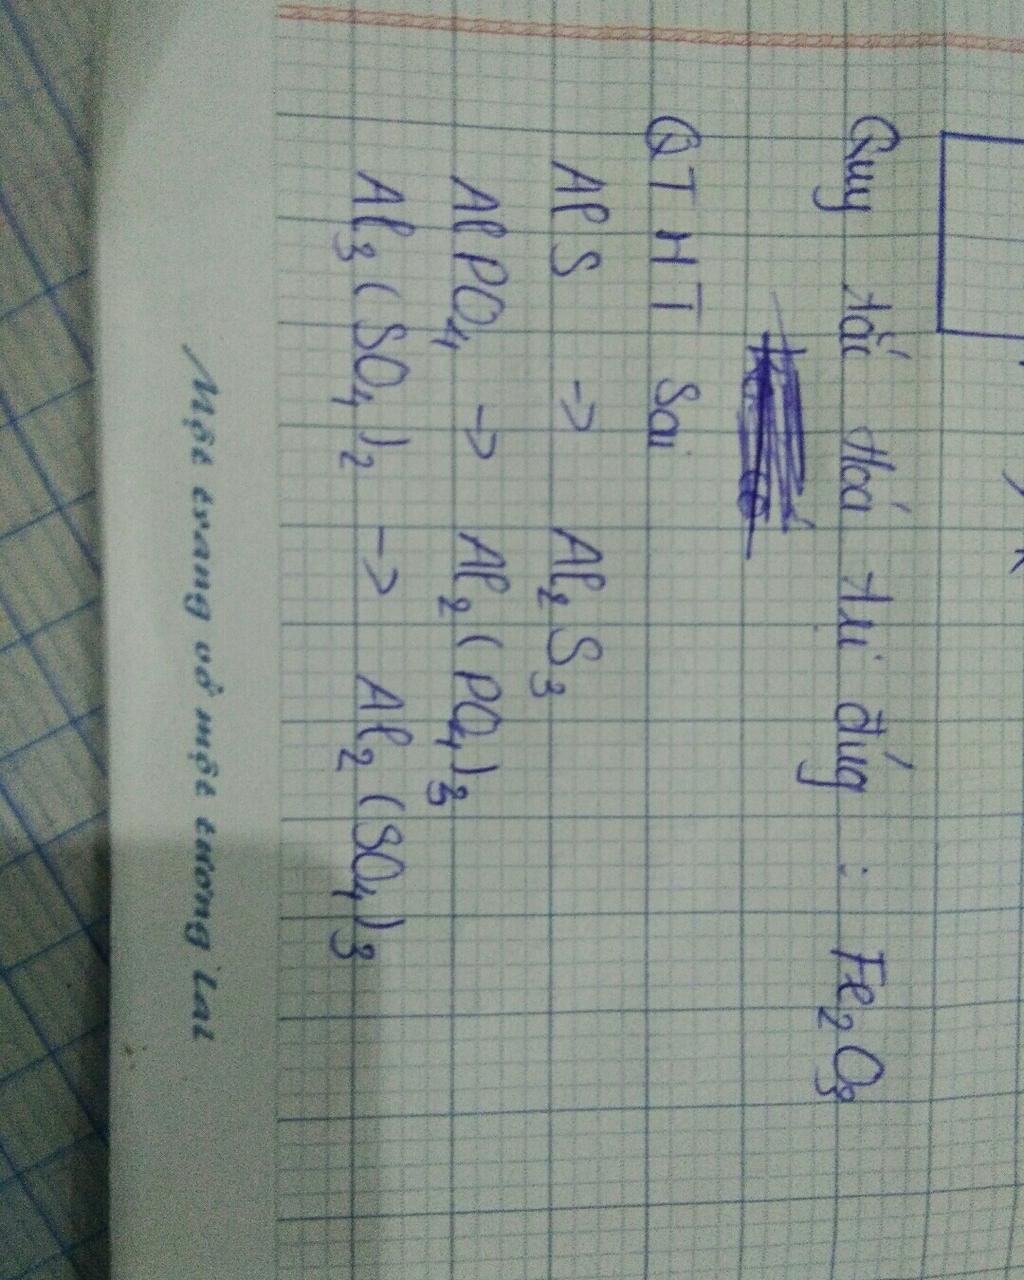 Quy tắc Hoá trị đúg : Fe2O3
QT HT Sai
AlS -> Al2S3
AlPO4 -> Al2(PO4)3
Al3(SO4)2 -> Al2(SO4)3
Một trang vở một tương lai